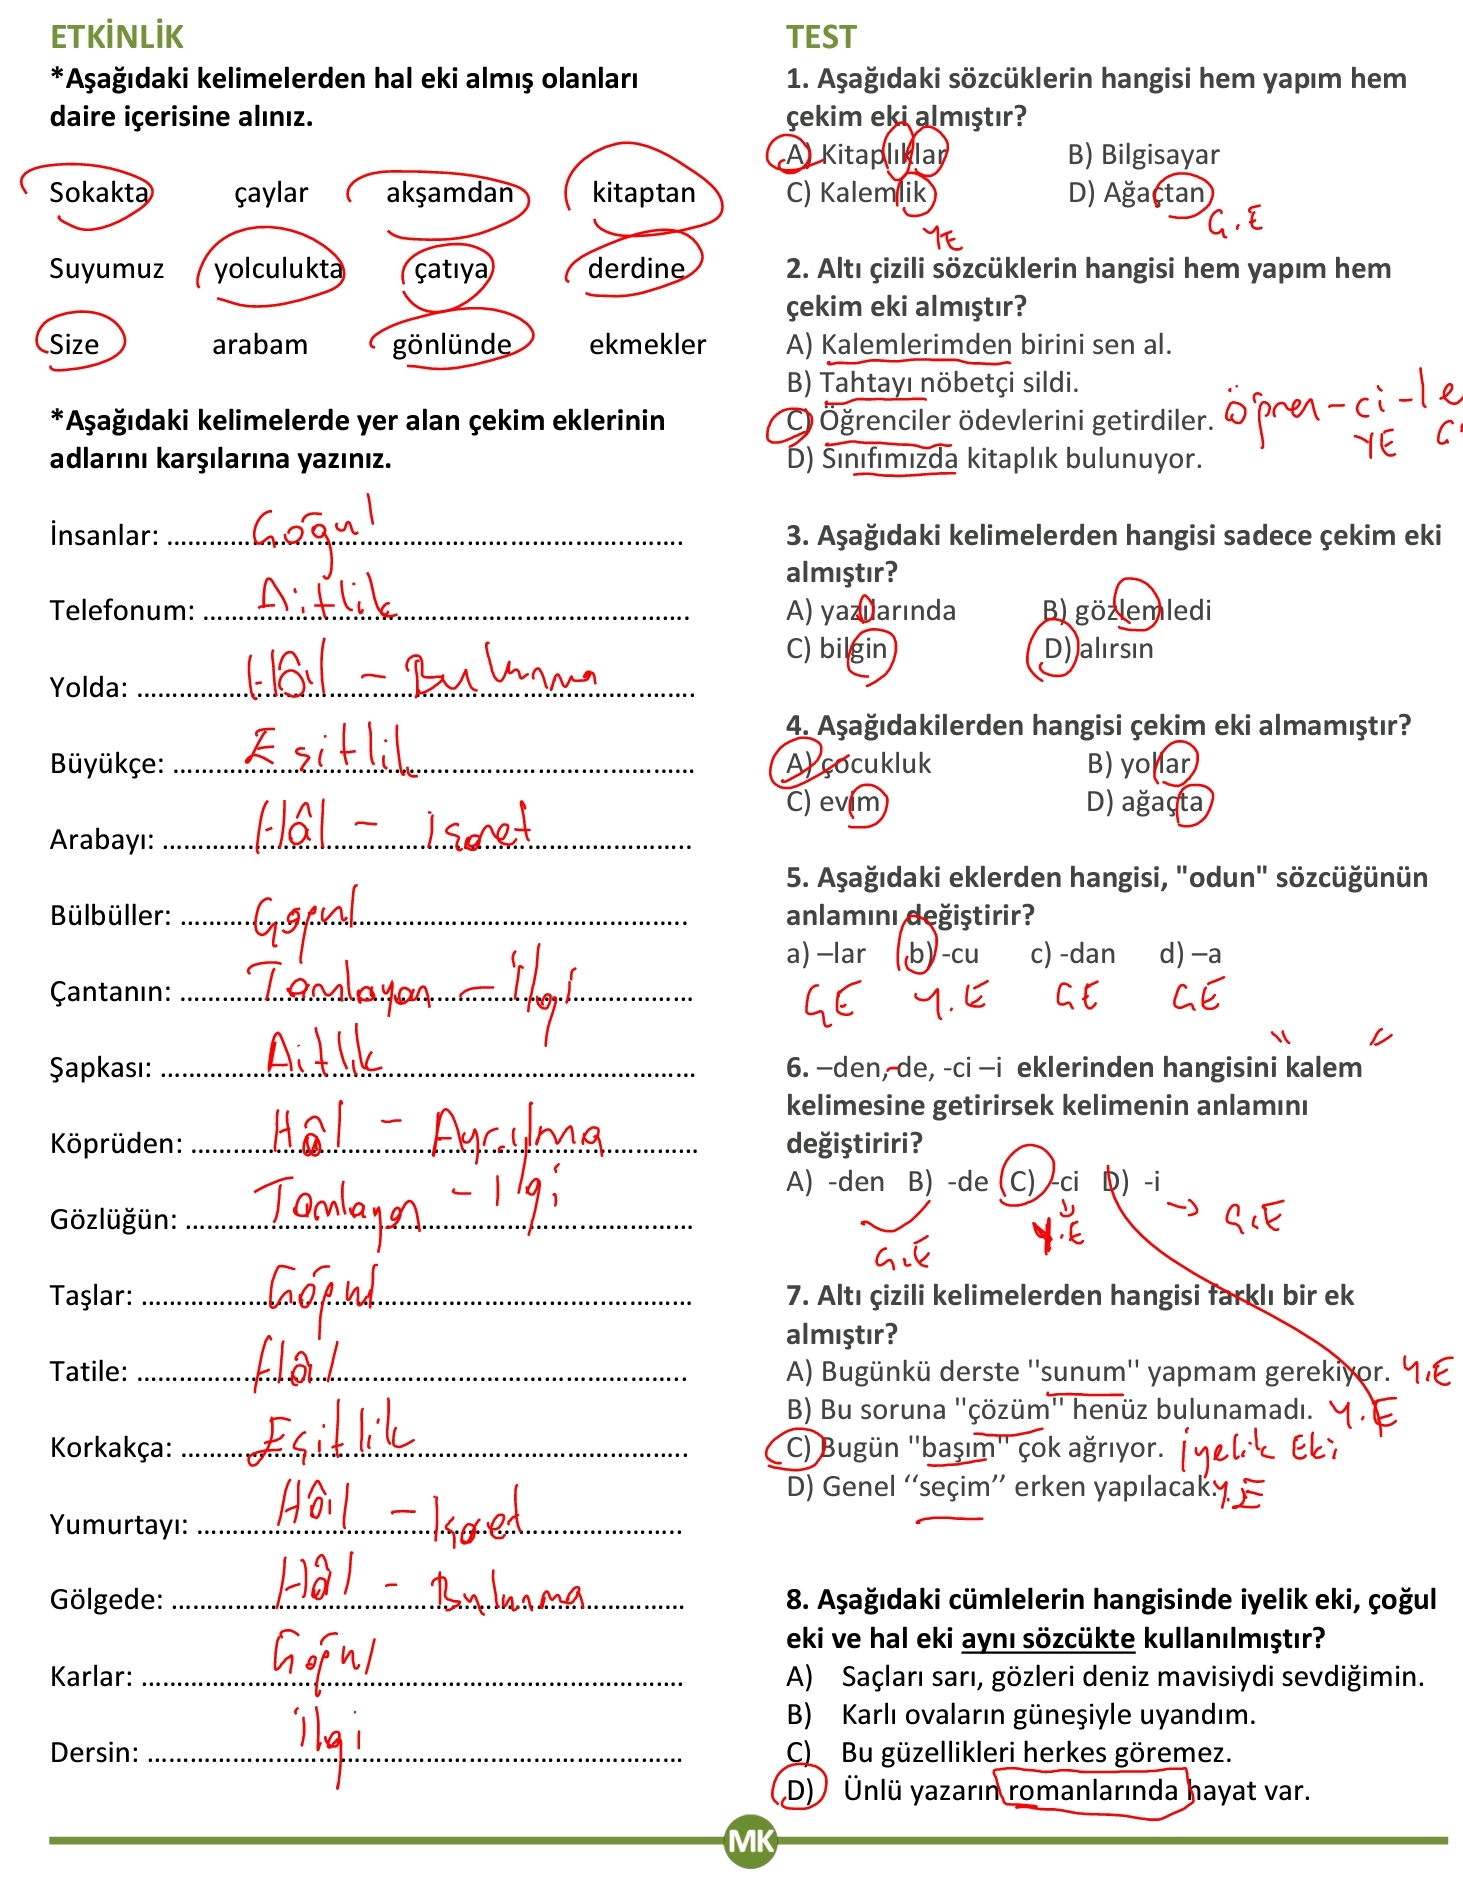 ETKİNLİK
*Aşağıdaki kelimelerden hal eki almış olanları
daire içerisine alınız.
Sokakta çaylar akşamdan kitaptan
Suyumuz yolculukta çatıya derdine
Size arabam gönlünde ekmekler
*Aşağıdaki kelimelerde yer alan çekim eklerinin
adlarını karşılarına yazınız.
İnsanlar: Çoğul
Telefonum: Aitlik
Yolda: Hâl - Bulunma
Büyükçe: Eşitlik
Arabayı: Hâl - işaret
Bülbüller: Çoğul
Çantanın: Tamlayan - ilgi
Şapkası: Aitlik
Köprüden: Hâl - Ayrılma
Gözlüğün: Tamlayan - ilgi
Taşlar: Çoğul
Tatile: Hâl
Korkakça: Eşitlik
Yumurtayı: Hâl - işaret
Gölgede: Hâl - Bulunma
Karlar: Çoğul
Dersin: ilgi
TEST
1. Aşağıdaki sözcüklerin hangisi hem yapım hem
çekim eki almıştır?
A) Kitaplıklar B) Bilgisayar
C) Kalemlik D) Ağaçtan
YE Ç.E
2. Altı çizili sözcüklerin hangisi hem yapım hem
çekim eki almıştır?
A) Kalemlerimden birini sen al.
B) Tahtayı nöbetçi sildi.
C) Öğrenciler ödevlerini getirdiler. öğren-ci-le
YE Ç
D) Sınıfımızda kitaplık bulunuyor.
3. Aşağıdaki kelimelerden hangisi sadece çekim eki
almıştır?
A) yazılarında B) gözlemledi
C) bilgin D) alırsın
4. Aşağıdakilerden hangisi çekim eki almamıştır?
A) çocukluk B) yollar
C) evim D) ağaçta
5. Aşağıdaki eklerden hangisi, "odun" sözcüğünün
anlamını değiştirir?
a) –lar b) -cu c) -dan d) –a
ÇE Y.E ÇE ÇE
6. –den,-de, -ci –i eklerinden hangisini "kalem"
kelimesine getirirsek kelimenin anlamını
değiştiriri?
A) -den B) -de C) -ci D) -i → Ç.E
Ç.E Y.E
7. Altı çizili kelimelerden hangisi farklı bir ek
almıştır?
A) Bugünkü derste ''sunum'' yapmam gerekiyor. Y.E
B) Bu soruna ''çözüm'' henüz bulunamadı. Y.E
C) Bugün ''başım'' çok ağrıyor. iyelik Eki
D) Genel ‘‘seçim’’ erken yapılacak. Y.E
8. Aşağıdaki cümlelerin hangisinde iyelik eki, çoğul
eki ve hal eki aynı sözcükte kullanılmıştır?
A) Saçları sarı, gözleri deniz mavisiydi sevdiğimin.
B) Karlı ovaların güneşiyle uyandım.
C) Bu güzellikleri herkes göremez.
D) Ünlü yazarın romanlarında hayat var.
MK